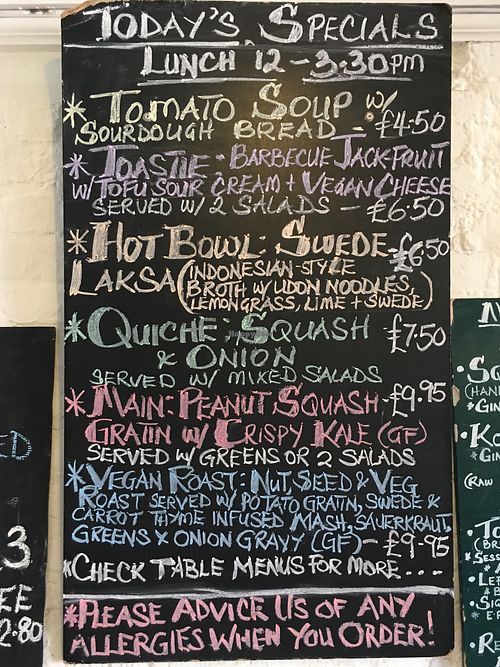 TODAY'S SPECIALS
LUNCH 12 - 3.30PM
* TOMATO SOUP W/
SOURDOUGH BREAD - £4.50
* TOASTIE: BARBECUE JACK-FRUIT
W/ TOFU SOUR CREAM + VEGAN CHEESE
SERVED W/ 2 SALADS - £6.50
* HOT BOWL: SWEDE - £6.50
LAKSA (INDONESIAN-STYLE
BROTH W/ UDON NOODLES,
LEMONGRASS, LIME + SWEDE)
* QUICHE: SQUASH - £7.50
& ONION
SERVED W/ MIXED SALADS
* MAIN: PEANUT SQUASH - £9.95
GRATIN W/ CRISPY KALE (GF)
SERVED W/ GREENS OR 2 SALADS
* VEGAN ROAST: NUT, SEED & VEG
ROAST SERVED W/ POTATO GRATIN, SWEDE &
CARROT THYME INFUSED MASH, SAUERKRAUT,
GREENS & ONION GRAVY (GF) - £9-95
* CHECK TABLE MENUS FOR MORE...
* PLEASE ADVICE US OF ANY
ALLERGIES WHEN YOU ORDER!
ED
3
EE
2.80